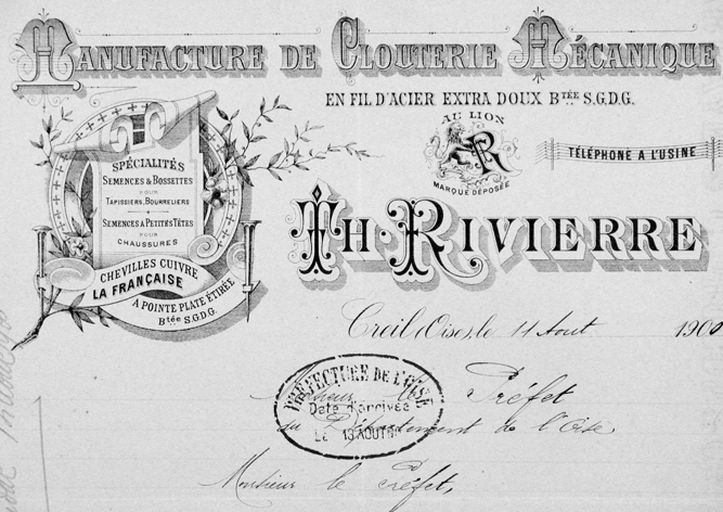 MANUFACTURE DE CLOUTERIE MÉCANIQUE
EN FIL D'ACIER EXTRA DOUX BTÉE S.G.D.G.
AU LION
R
MARQUE DÉPOSÉE
TÉLÉPHONE A L'USINE
SPÉCIALITÉS
SEMENCES & BOSSETTES
POUR
TAPISSIERS, BOURRELIERS
SEMENCES A PETITES TÊTES
POUR
CHAUSSURES
CHEVILLES CUIVRE
LA FRANÇAISE
A POINTE PLATE ÉTIRÉE
BTÉE S.G.D.G.
TH. RIVIERRE
Creil (Oise), le 11 Aout 190
PRÉFECTURE DE L'OISE
Date d'arrivée
LE 13 AOUT
Monsieur le Préfet
du Département de l'Oise
Monsieur le Préfet,